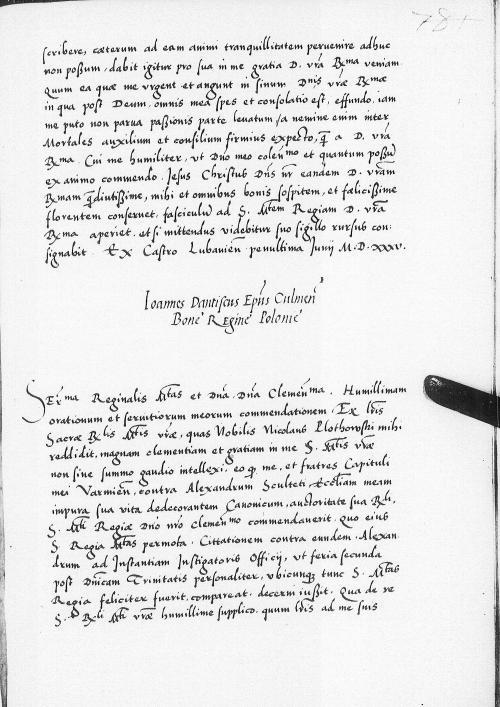 784
scribere, cæterum ad eam animi tranquillitatem peruenire adhuc
non possum, dabit igitur pro sua in me gratia D. vr̃a Rx̃ma veniam
Quum ea quæ me vrgent et angunt in sinum Dnis vræ Rx̃mæ
in qua post Deum, omnis mea spes et consolatio est, effundo, iam
me puto non parua passionis parte leuatum, a nemine enim inter
Mortales auxilium et consilium firmius expecto, q̃ a D. vr̃a
Rx̃ma. Cui me humiliter, vt Dño meo colenmo et quantum possũ
ex animo commendo. Jesus Christus Dñs nr̃ eandem D. vr̃am
Rx̃mam q̃diutissime, mihi et omnibus bonis sospitem, et fælicissime
florentem conseruet, fasciculũ ad S. Mtem Regiam D. vr̃a
Rx̃ma aperiet, et si mittendus videbitur suo sigillo rursus con-
signabit. Ex Castro Lubauień penultima Junij M.D.xxxv.
Ioannes Dantiscus Ep̃us Culmeñ
Bone Regine Polonie
Serma Reginalis Mtas et Dña Dña Clemeñma. Humillimam
orationum et seruitiorum meorum commendationem. Ex lr̃is
Sacræ Rlis Mtis vræ, quas Nobilis Nicolaus Plothowski mihi
reddidit, magnam clementiam et gratiam in me S. Mtis vræ
non sine summo gaudio intellexi, eo q, me, et fratres Capituli
mei Varmień, contra Alexandrum Sculteti Eccliam meam
impura sua vita dedecorantem Canonicum, auctoritate sua Rli,
S. Mti Regiæ Dño nr̃o clemeñmo commendauerit, quo eius
S. Regia Mtas permota, Citationem contra eundem Alexan-
drum ad Instantiam Instigatoris Officij, vt feria secunda
post Dñicam Trinitatis personaliter, vbicunq tunc S. Mtas
Regia feliciter fuerit, compareat, decerni iussit. Qua de re
S. Rli Mti vræ humillime supplico, quum lr̃is ad me suis